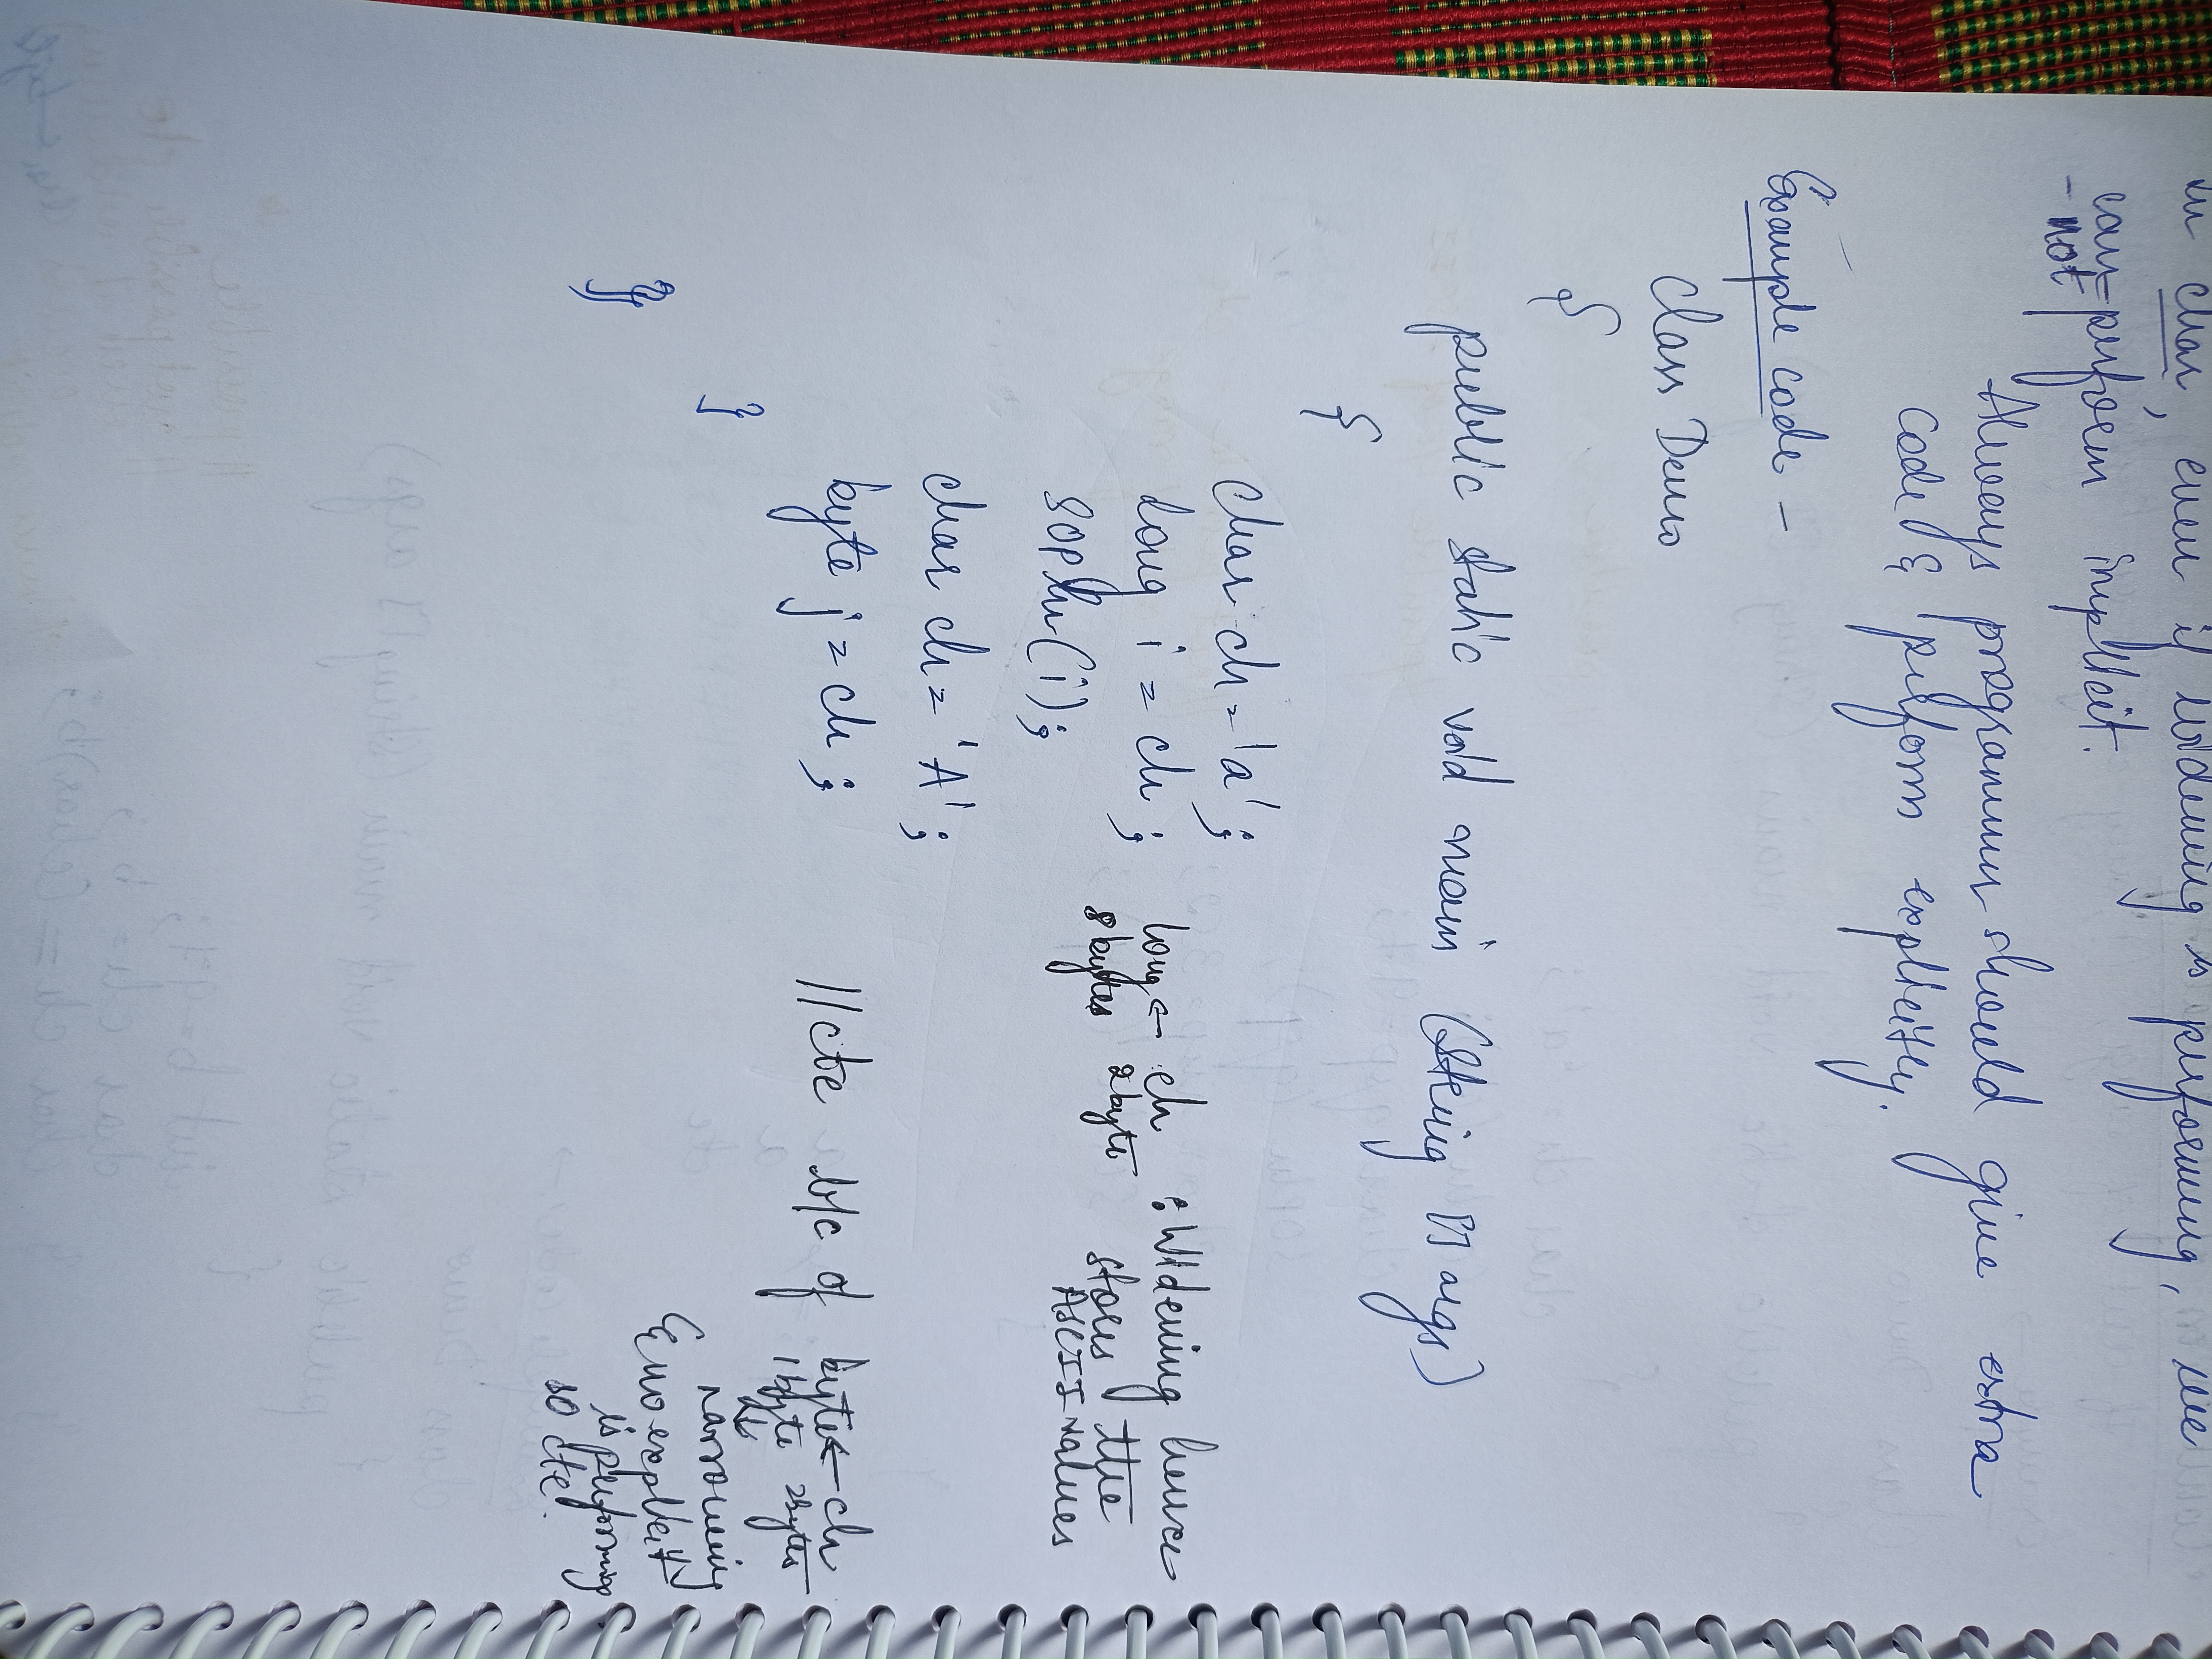 in char, even if widening is performing, we
can-perform implicit.
-not
Always programmer should give extra
code & perform explicitly.
Example code -
class Demo
{
public static void main (String [] args)
{
char ch = 'a';
long i = ch; long ← ch : Widening hence
8 bytes 2 byte stores the
ASCII values
Sopln(i);
char ch = 'A';
byte j = ch; //cte b/c of byte ← ch
1 byte 2 bytes
narrowing
& no explicitly
is performing
so cte.
}
}